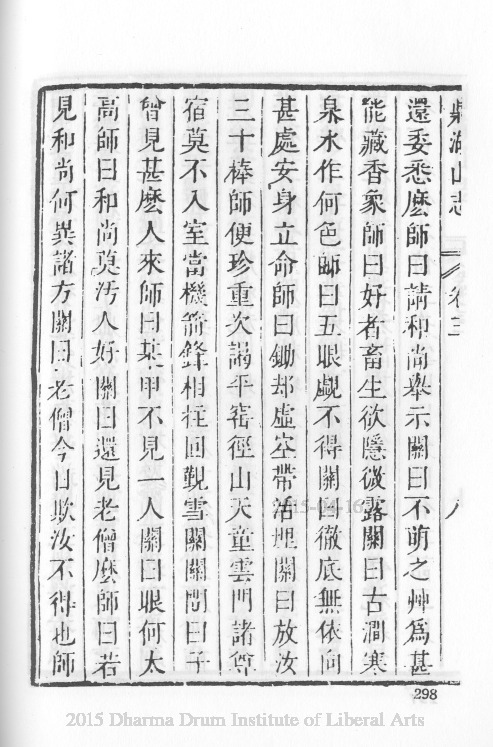 鼎湖山志 卷三 八
還委悉麼師曰請和尚舉示關曰不萌之艸為甚
能藏香象師曰好者畜生欲隱彼露關曰古澗寒
泉水作何色師曰五眼覷不得關曰徹底無依向
甚處安身立命師曰鋤却虛空帶活埋關曰放汝
三十棒師便珍重次謁平窑徑山天童雲門諸尊
宿莫不入室當機箭鋒相拄回覲雪關關問曰子
曾見甚麼人來師曰某甲不見一人關曰眼何太
高師曰和尚莫汚人好關曰還見老僧麼師曰若
見和尚何異諸方關曰老僧今日欺汝不得也師
298
2015-04-16
2015 Dharma Drum Institute of Liberal Arts